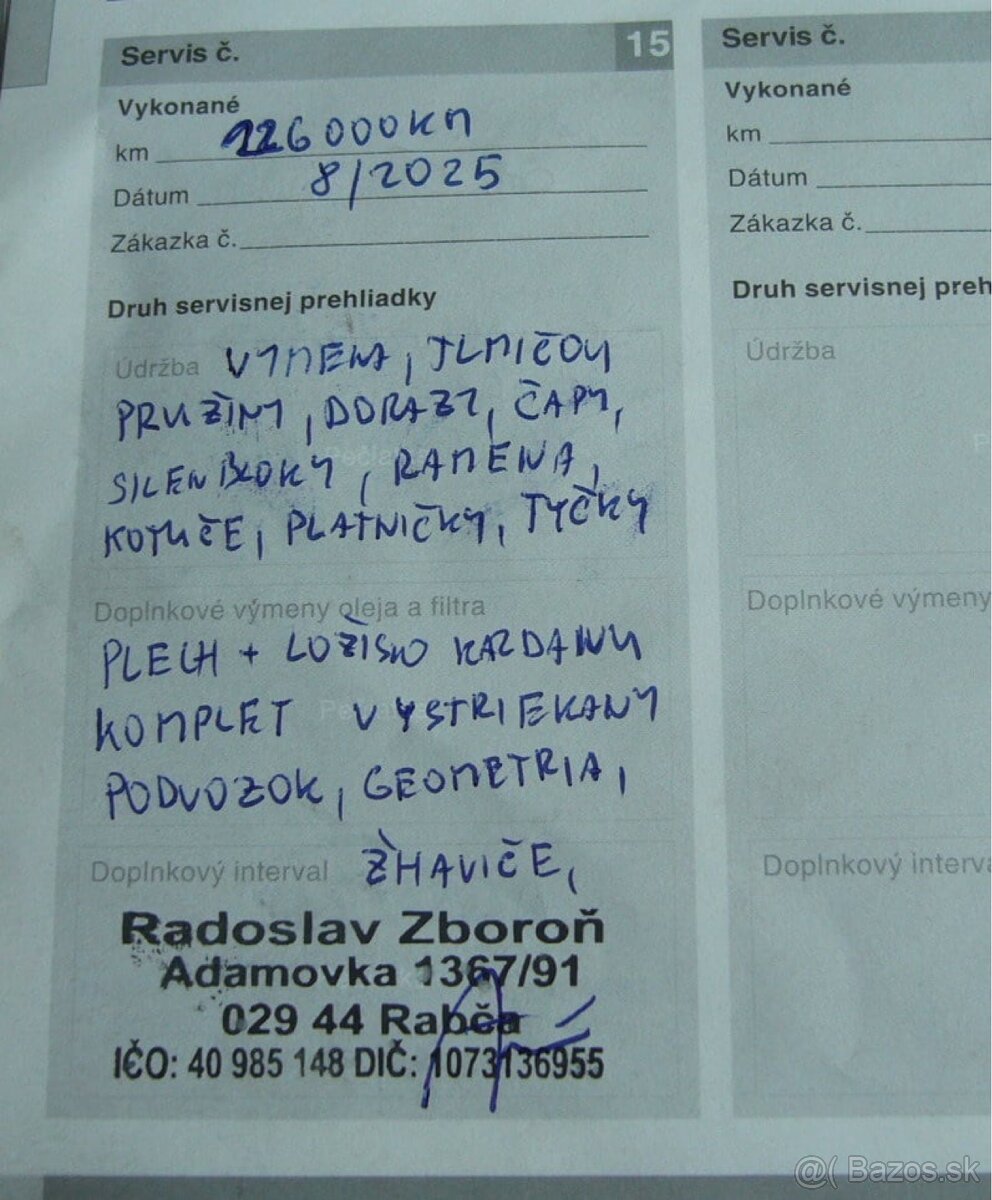 Servis č. 15
Vykonané
km 226000KM
Dátum 8/2025
Zákazka č.
Druh servisnej prehliadky
Údržba VYMENA, TLMIČOV
PRUŽINY, DORAZY, ČAPY,
SILENBLOKY, RAMENA,
KOTUČE, PLATNIČKY, TYČKY
Doplnkové výmeny oleja a filtra
PLECH + LOŽISKO KARDANU
KOMPLET VYSTRIEKANY
PODVOZOK, GEOMETRIA,
Doplnkový interval ŽHAVIČE,
Radoslav Zboroň
Adamovka 1367/91
029 44 Rabča
IČO: 40 985 148 DIČ: 1073136955
Servis č.
km
Vykonané
Dátum
Zákazka č.
Druh servisnej preh
Údržba
Doplnkové výmeny
Doplnkový interva
@( Bazos.sk